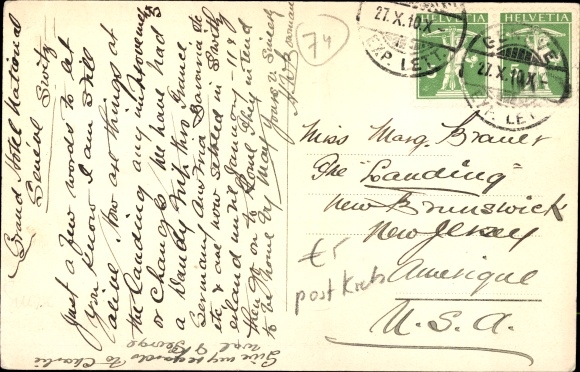 Grand Hotel National
Geneva Switz
Just a few words to let
you know I am still
alive. How are things at
the Landing any improvements
or changes. We have had
a Dandy trip thro France
Germany Austria Bavaria
etc & are now settled in Switz
eland until January - 1911
then go on to Rome They intend
to be home by May Yours sincerely
Give my regards to Charlie
George
74
HELVETIA
HELVETIA
27.X.10.X
EXP. LETT.
GENÈVE
27.X.10.X
EXP. LETT.
Miss Marg. Brauer
The "Landing"
New Brunswick
New Jersey
Amerique
U.S.A.
€5
post Krebs